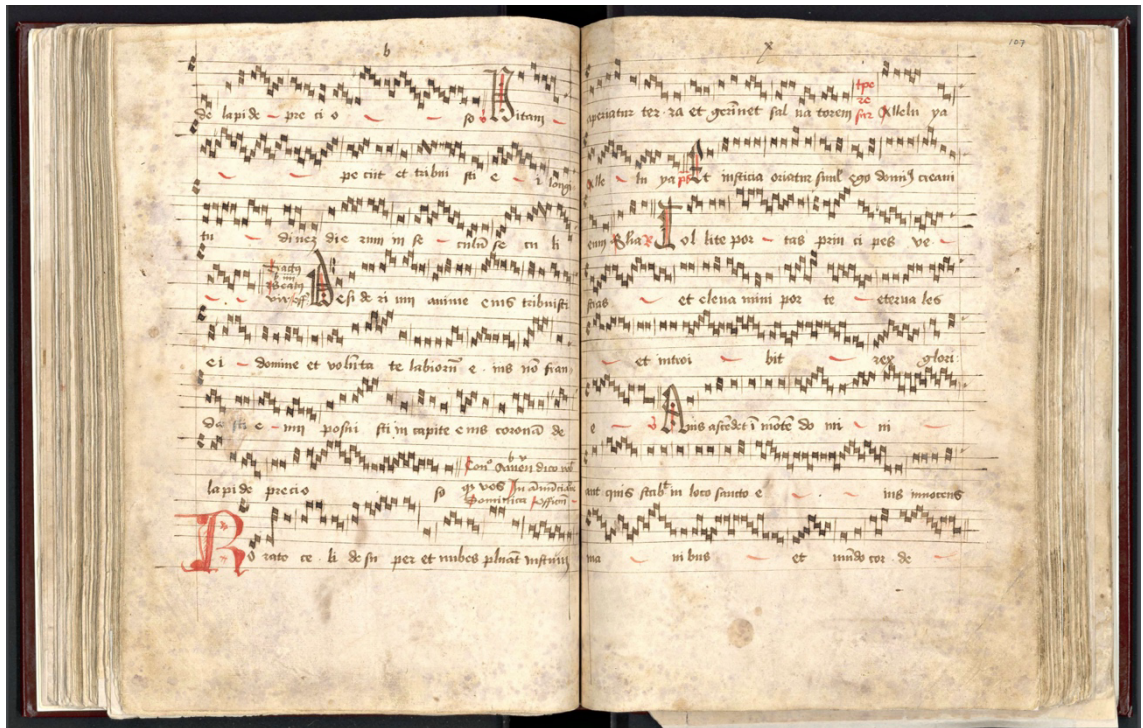 b
de lapide pre ci o so v Vitam
pe ciit et tribui sti e i longi
tu dinez die rum in se culū se cu li
Desi de ri um anime eius tribuisti
ei domine et volūta te labiorū e ius nō frau
da sti e um posui sti in capite eius coronā de
lapide precio so
Ro rate ce li de su per et nubes pluāt iustum
x
107
aperiatur ter ra et germet sal va torem Allelu ya
Alle lu ya ps Et iusticia oriatur simul ego dominus creavi
eum Tol lite por tas prin ci pes ve
stras et eleva mini por te eterna les
et introi bit rex glori
e v Quis ascēdet ī mōte do mi ni
aut quis stab in loco sancto e ius innocens
ma nibus et mūdo cor de